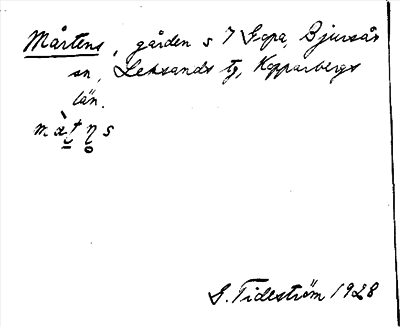 Mårtens, gården s 7 Sopa, Bjursås
sn, Leksands tg, Kopparbergs
län.
màtn̥s
S. Tideström 1928